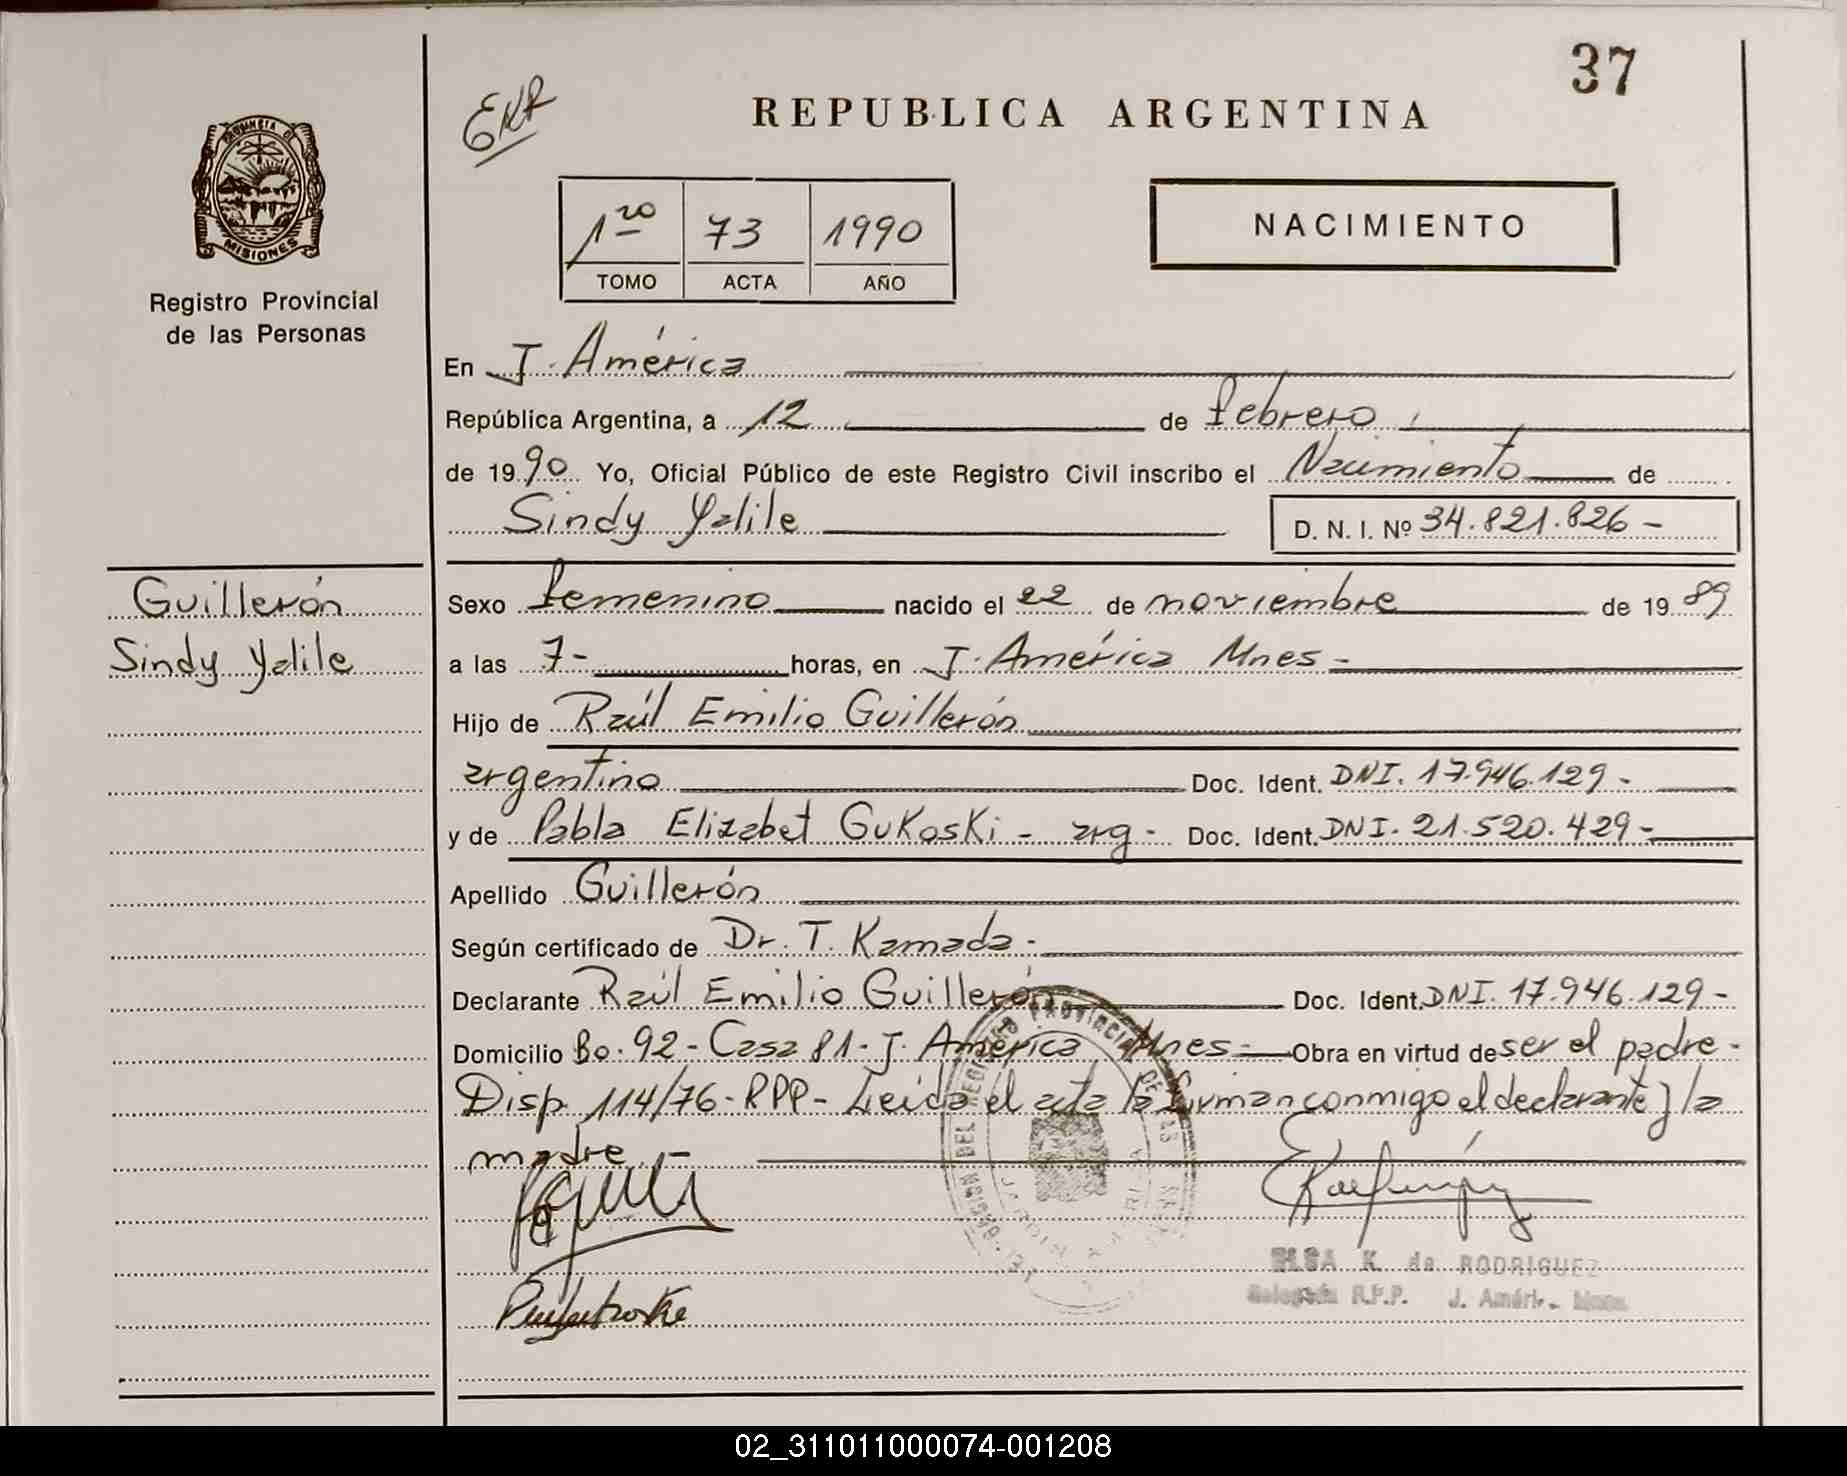 37
EKR
REPUBLICA ARGENTINA
PROVINCIA D
MISIONES
Registro Provincial
de las Personas
1ro 73 1990
TOMO ACTA AÑO
NACIMIENTO
En J. América
República Argentina, a 12 de febrero
de 1990 Yo, Oficial Público de este Registro Civil inscribo el Nacimiento de
Sindy Yalile D. N. I. Nº 34.821.826 -
Guillerón
Sindy Yalile
Sexo femenino nacido el 22 de noviembre de 19 89
a las 7- horas, en J. América Mnes -
Hijo de Raúl Emilio Guillerón
argentino Doc. Ident. DNI. 17.946.129 -
y de Pabla Elizabet GuKosKi - arg - Doc. Ident. DNI. 21.520.429 -
Apellido Guillerón
Según certificado de Dr. T. Kamada -
Declarante Raúl Emilio Guillerón Doc. Ident. DNI. 17.946.129 -
Domicilio Bo. 92 - Casa 81 - J. América Mnes - Obra en virtud de ser el padre -
Disp. 114/76 - RPP - Leída el acta la firman conmigo el declarante y la
madre
ELSA K. de RODRIGUEZ
R.P.P. J. Améri
02_311011000074-001208